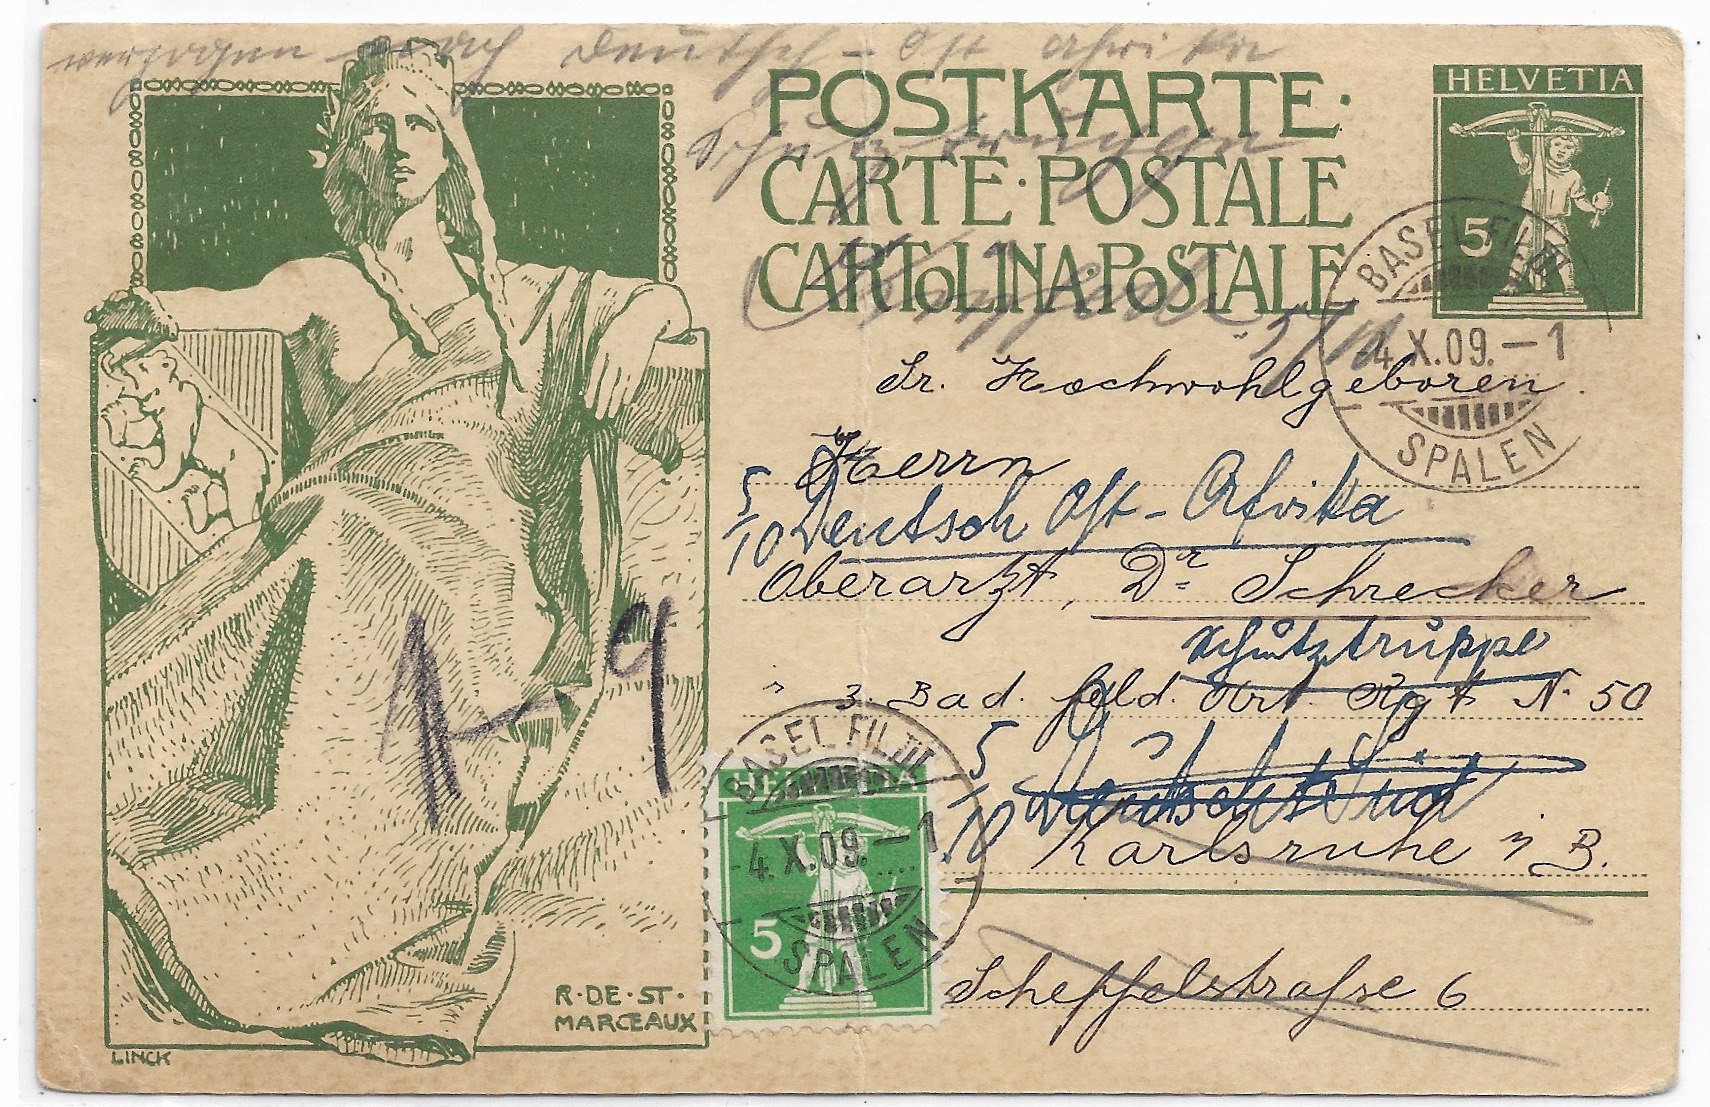 verzogen nach Deutsch-Ost afrika
POSTKARTE·
HELVETIA
CARTE·POSTALE
CARTOLINA·POSTALE
5
BASEL FIL.
-4.X.09.-1
SPALEN
5/10
Sr. Hochwohlgeboren.
Herrn
5/10 Deutsch Ost-Afrika
Oberarzt, Dr Schrecker
Schutztruppe
3. Bad. Feld. Art. Rgt N. 50
1-9
5/10
Karlsruhe i/B.
HELVETIA
5
BASEL FIL.
-4.X.09.-1
SPALEN
Scheffelstraße 6
R·DE·ST·
MARCEAUX
LINCK